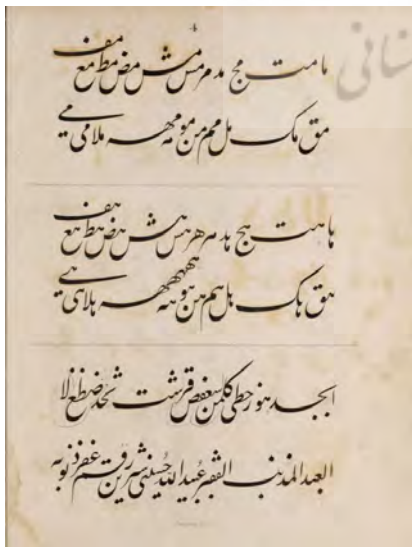 ما مت مج مد مر مس مش مص مط مع مف
مق مک مل مم من مو مه مهـ ملا می مے
ها هت هج هد هر هس هش هص هط هع هف
هق هک هل هم هن هو هه ههـ هلا هی هے
ابجد هوز حطی کلمن سعفص قرشت ثخذ ضظغ لا
العبد المذنب الفقیر عبید الله حسینی شیرین رقم غفر ذنوبه